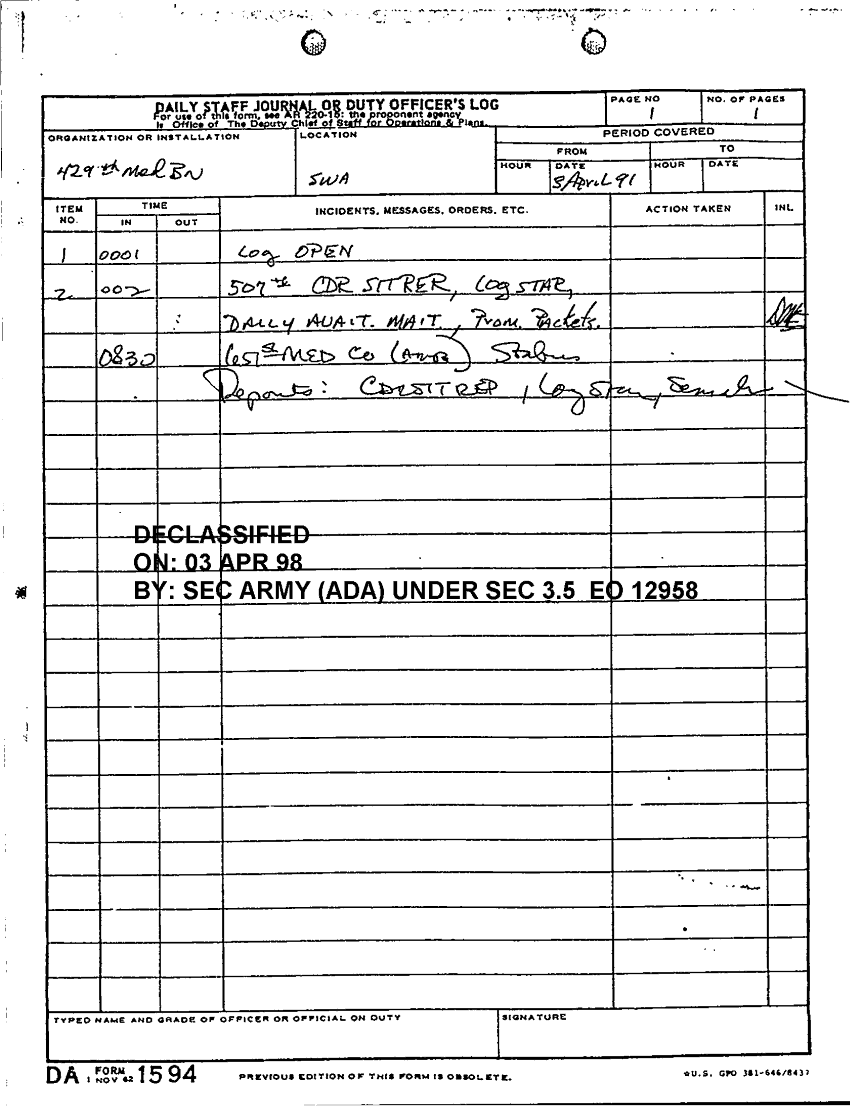 DAILY STAFF JOURNAL OR DUTY OFFICER'S LOG
For use of this form, see AR 220-15; the proponent agency
is Office of The Deputy Chief of Staff for Operations & Plans.
PAGE NO
1
NO. OF PAGES
1
ORGANIZATION OR INSTALLATION
429th Med BN
LOCATION
SWA
PERIOD COVERED
FROM
TO
HOUR
DATE
3 April 91
HOUR
DATE
ITEM NO.
TIME
IN
OUT
INCIDENTS, MESSAGES, ORDERS, ETC.
ACTION TAKEN
INL
1 0001 Log OPEN
2 002 507th CDR SITRER, LogSTAR,
DAILY AVAIT. MAIT., Prom. Packets.
0830 651st MED CO (AMB) Status
Reports: CDRSITREP, Log Star,
DECLASSIFIED
ON: 03 APR 98
BY: SEC ARMY (ADA) UNDER SEC 3.5 EO 12958
TYPED NAME AND GRADE OF OFFICER OR OFFICIAL ON DUTY
SIGNATURE
DA FORM 1 NOV 62 1594
PREVIOUS EDITION OF THIS FORM IS OBSOLETE.
☆U.S. GPO 381-646/8437